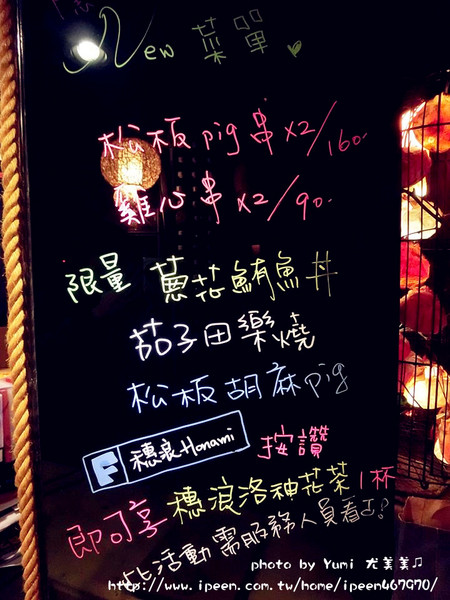 New 菜單
松板pig串x2/160.
雞心串x2/90.
限量 蔥花鮪魚丼
茄子田樂燒
松板胡麻pig
F 穗浪Honami 按讚
即可享 穗浪洛神花茶1杯
此活動需服務人員看
photo by Yumi 尤美美♫
http://www.ipeen.com.tw/home/ipeen467970/